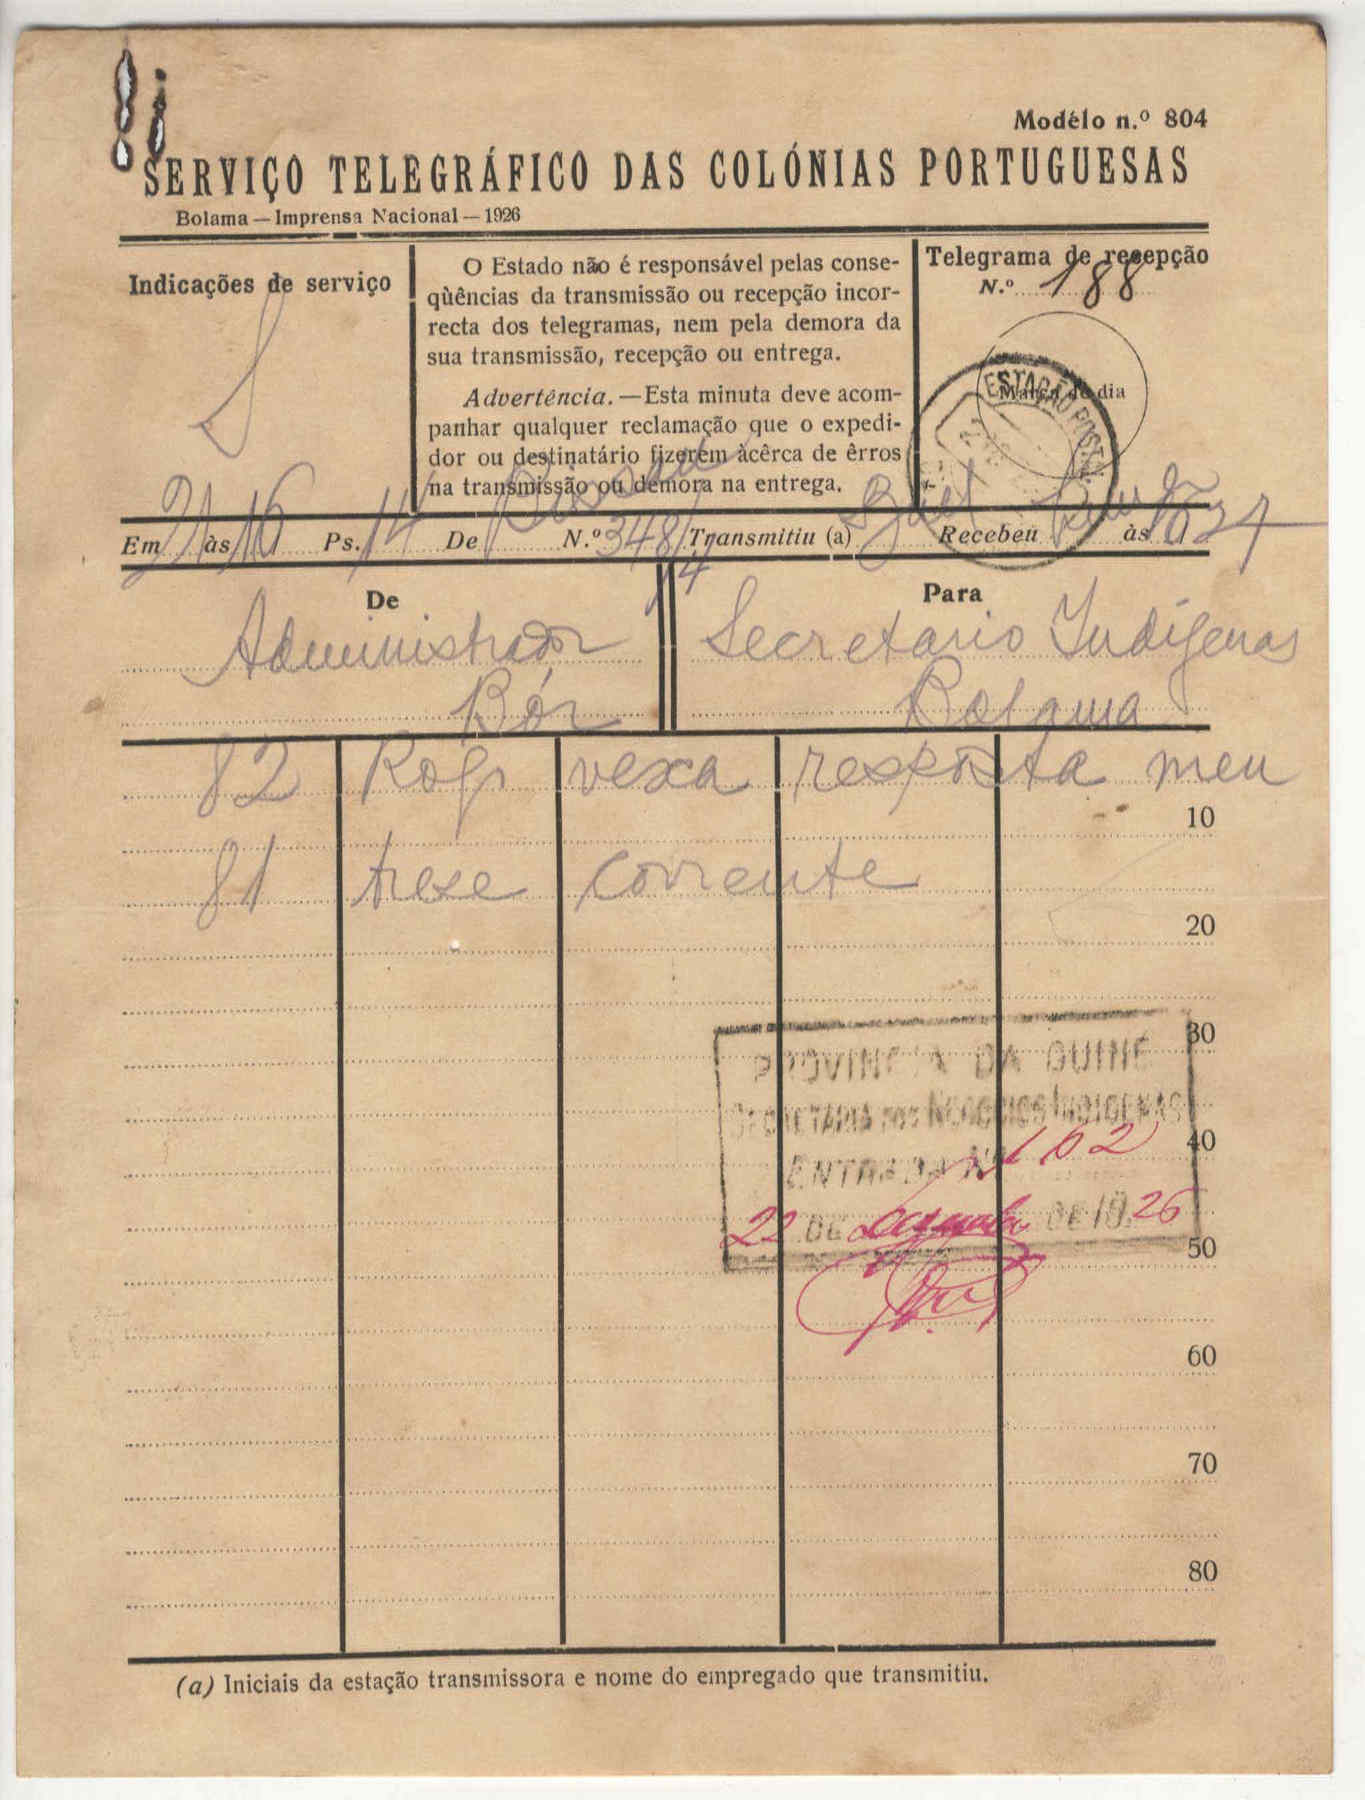 Modêlo n.º 804
SERVIÇO TELEGRÁFICO DAS COLÓNIAS PORTUGUESAS
Bolama — Imprensa Nacional — 1926
Indicações de serviço
S
O Estado não é responsável pelas conse-
qùências da transmissão ou recepção incor-
recta dos telegramas, nem pela demora da
sua transmissão, recepção ou entrega.
Advertência. — Esta minuta deve acom-
panhar qualquer reclamação que o expedi-
dor ou destinatário fizerem àcêrca de êrros
na transmissão ou demora na entrega.
Telegrama de recepção
N.º 188
Marca do dia
ESTAÇÃO POSTAL
Em 21 às 16 Ps. 14 De Bissau N.º 348/14 Transmitiu (a) Recebeu às
De
Administrador
Bór
Para
Secretario Indígenas
Bolama
82 Rogo vexa resposta meu
10
81 trese corrente
20
30
PROVINCIA DA GUINÉ
SECRETARIA DOS NEGOCIOS INDIGENAS
40
ENTRADA Nº 162
22 DE Dezembro DE 1926
50
60
70
80
(a) Iniciais da estação transmissora e nome do empregado que transmitiu.